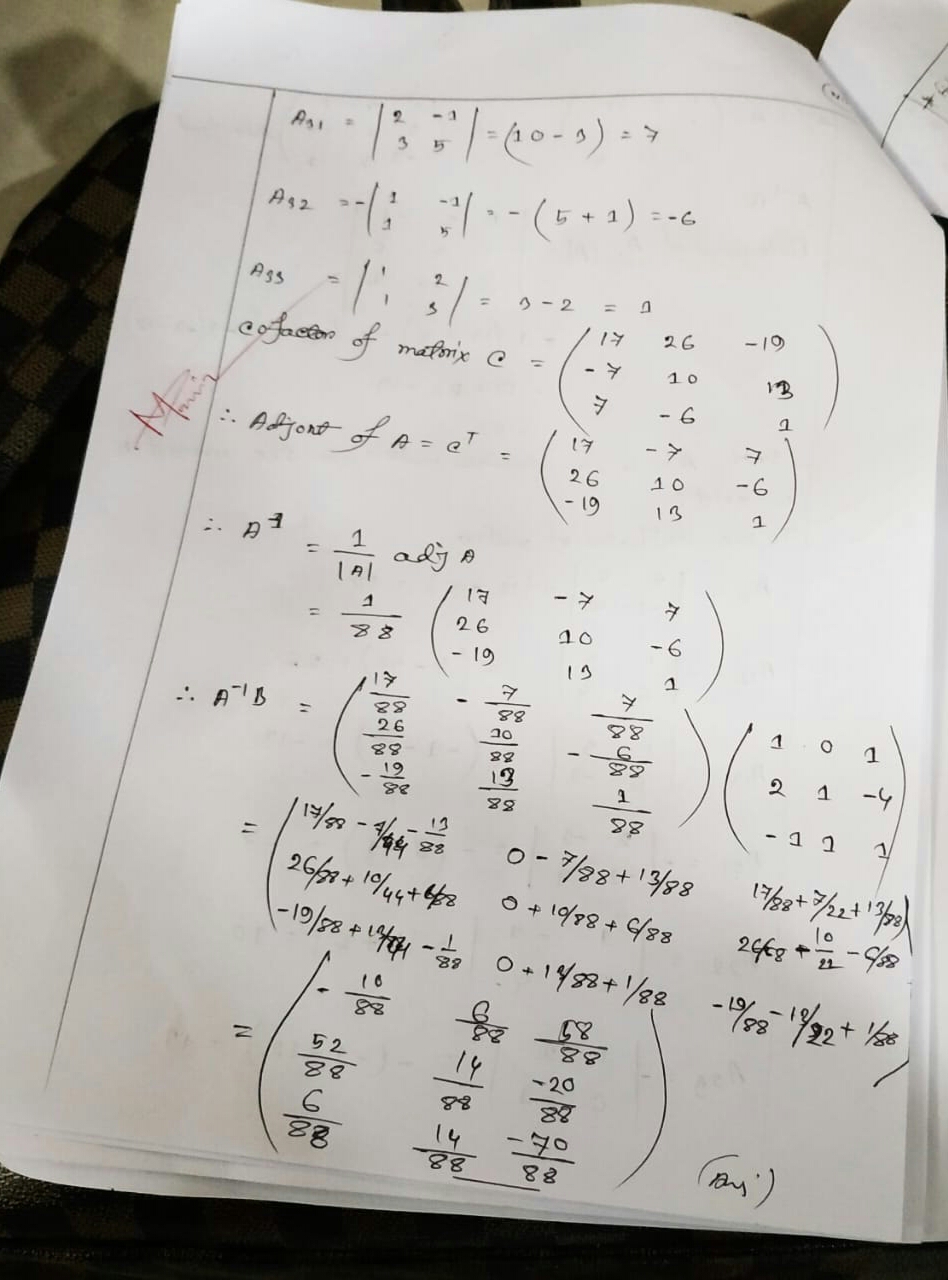 A₃₁ = | 2 -1 | = (10 - 3) = 7
3 5
A₃₂ = - | 1 -1 | = - (5 + 1) = -6
1 5
A₃₃ = | 1 2 | = 3 - 2 = 1
1 3
cofactor of matrix C = ( 17 26 -19
-7 10 13
7 -6 1 )
∴ Adjont of A = cᵀ = ( 17 -7 7
26 10 -6
-19 13 1 )
∴ A⁻¹ = 1/|A| adj A
= 1/88 ( 17 -7 7
26 10 -6
-19 13 1 )
∴ A⁻¹B = ( 17/88 - 7/88 7/88
26/88 10/88 - 6/88
- 19/88 13/88 1/88 ) ( 1 0 1
2 1 -4
-1 1 1 )
= ( 17/88 - 7/44 - 13/88 0 - 7/88 + 13/88 17/88 + 7/22 + 13/88
26/88 + 10/44 + 6/88 0 + 10/88 + 6/88 10/22 - 6/88
-19/88 - 1/88 0 + 1/88 -19/88 + 1/88 )
= ( - 10/88 6/88 58/88
52/88 14/88 -20/88
6/88 14/88 -70/88 ) (Ans:)